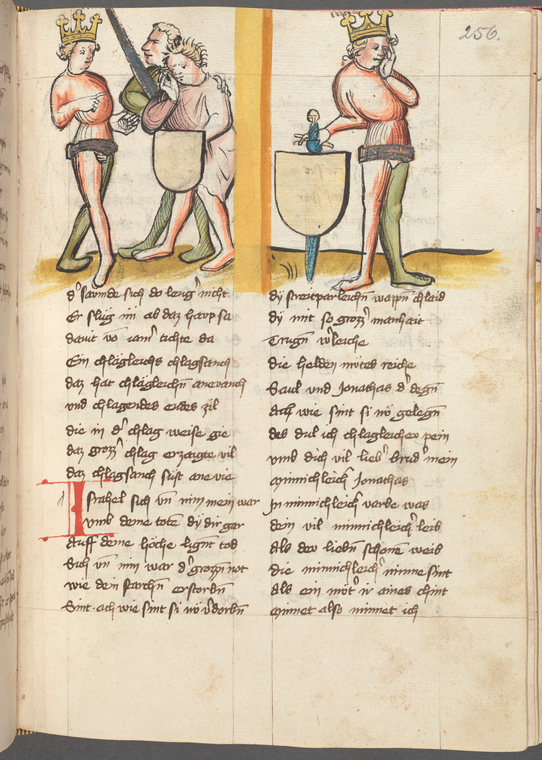 256.
d' saumde sich do leng' niht
Er slug im ab daz haup sa
dauit vo iam' tichte da
Ein chlägleichs chlagsanch
daz hat chlägleichn anevanch
vnd chlagendes endes zil
die in d' chlag weise gie
daz grozz chlag erzaigte vil
daz chlagsanch sust ane vie
Israhel sich vn nim mein war
vmb deine tote dy dir gar
Auff deine höche ligent tod
Sich vn nim war d' grozzn not
wie dein starchn erstorbn
Sint ach wie sint si nv v'dorbn
dy streitperleichn wappn chlaid
dy mit so grozz' manhait
Trugn w'leiche
die helden mutes reiche
Saul vnd Jonathas d' degn
ach wie sint si nv gelegn
des dul ich chlagleichev pein
vmb dich vil lieb' brud' mein
Minnichleich Jonathas
Jn minnichleich' varbe was
dein vil minnichleich' leib
Als dev liebn schone weib
die minnichleich' minne sint
als ein mut' ir aines chint
Minnet also minnet ich